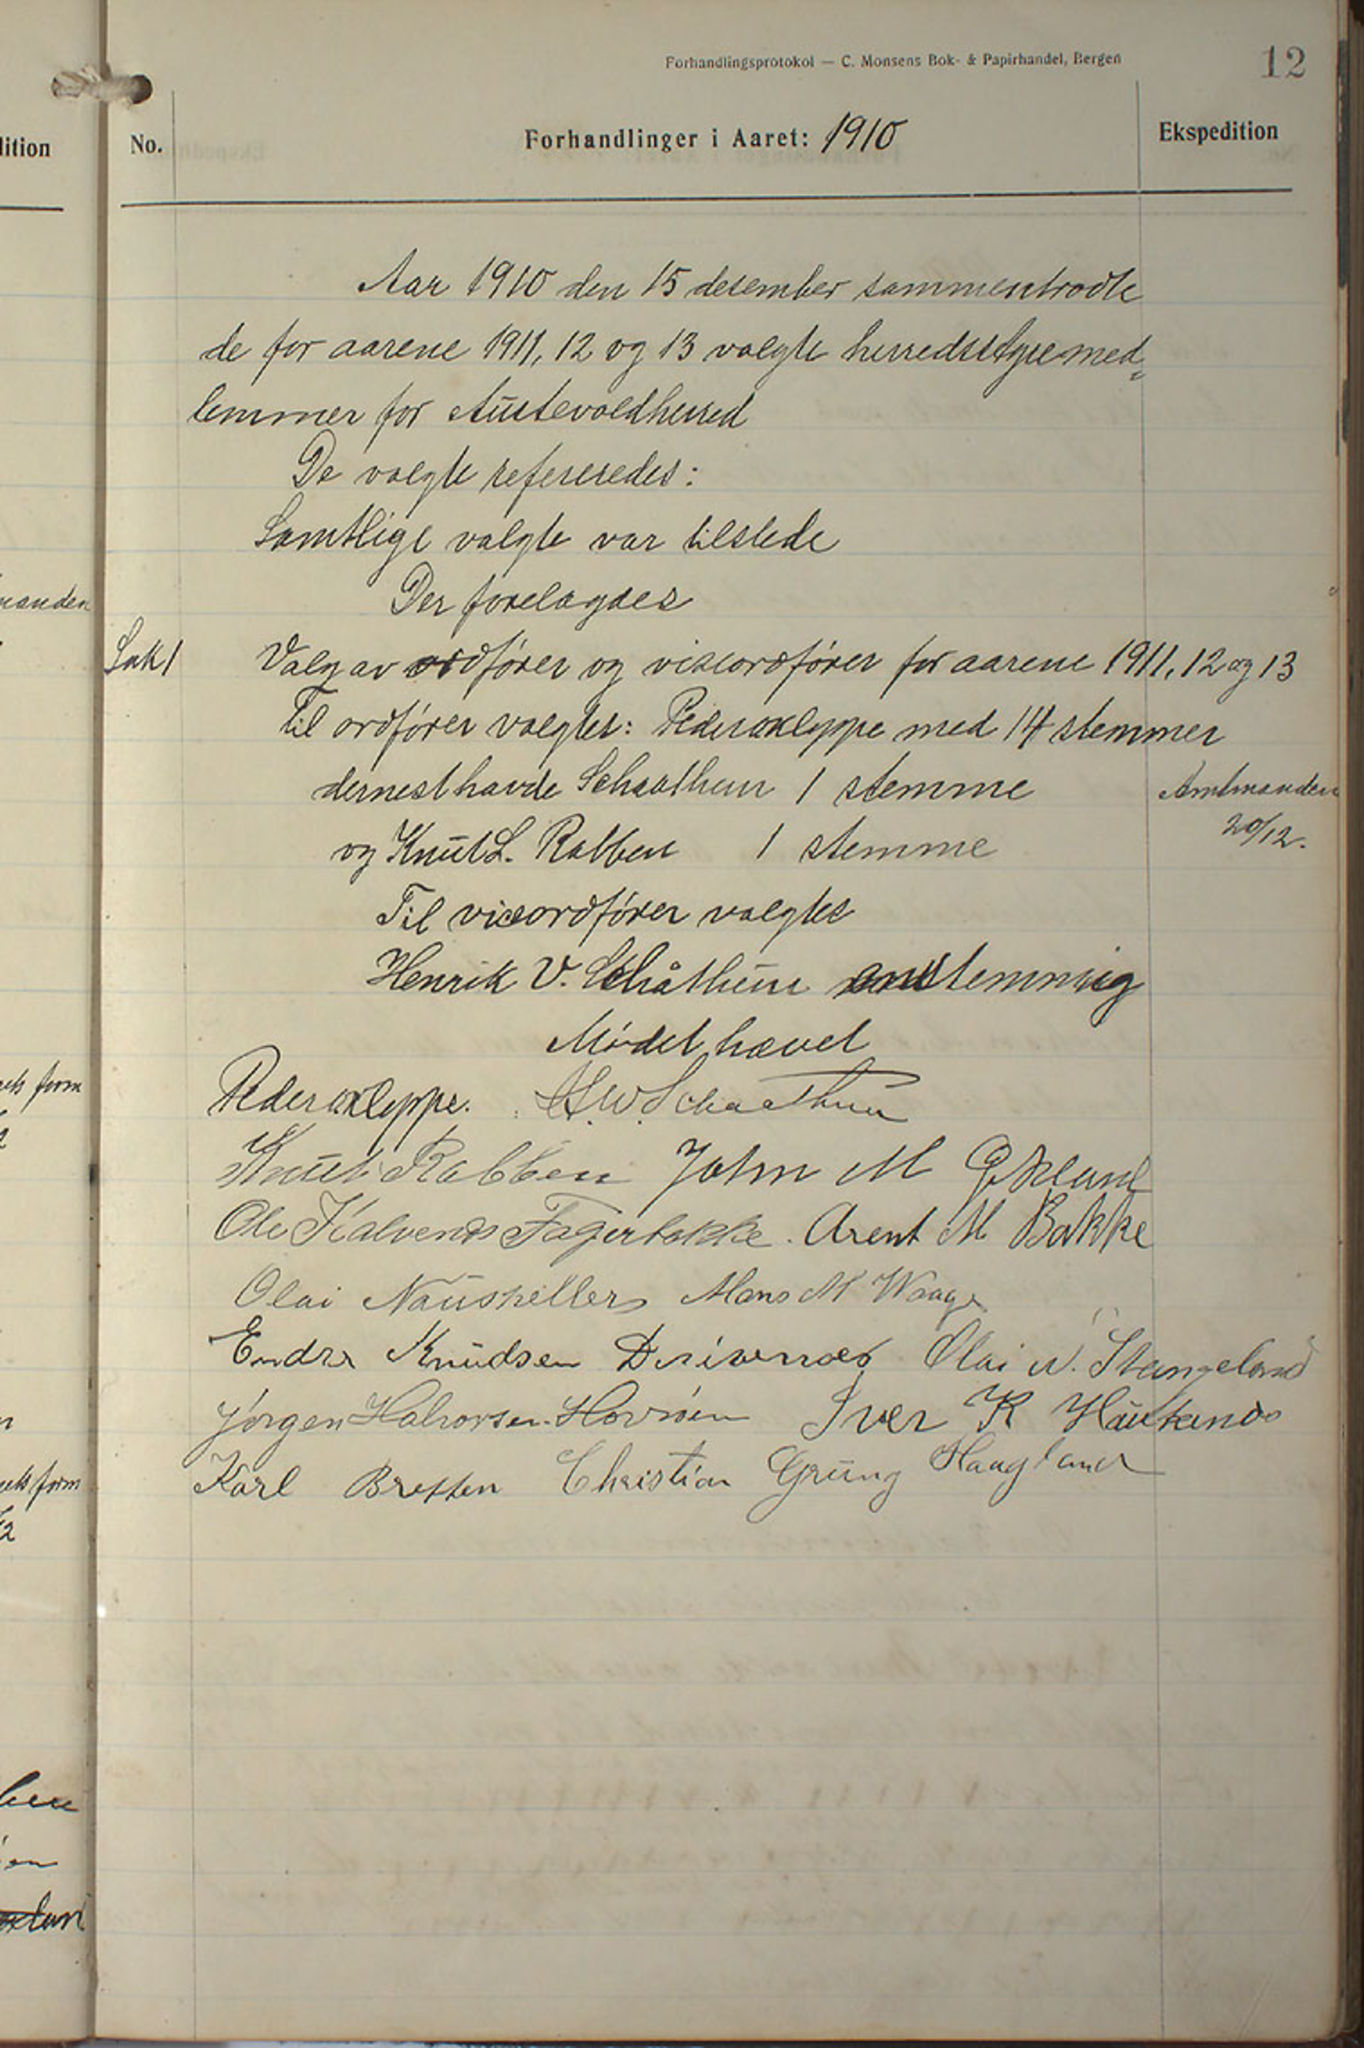 Forhandlingsprotokol — C. Monsens Bok- & Papirhandel, Bergen
12
No.
Forhandlinger i Aaret: 1910
Ekspedition
Aar 1910 den 15 desember sammentrodte
de for aarene 1911, 12 og 13 valgte herredsstyremed=
lemmer for Austevoldherred
De valgte refereredes:
Samtlige valgte var tilstede
Der forelagdes
Sak 1
Valg av ordfører og viseordfører for aarene 1911, 12 og 13
Til ordfører valgtes: Peder Kleppe med 14 stemmer
dernest havde Schaathun 1 stemme
Amtmanden
og Knut L. Rabben 1 stemme
20/12.
Til viceordfører valgtes
Henrik V. Schåthun enstemmig
Mødet hævet
Peder Kleppe. H.W. Schaathun
Knut Rabben John M Økland
Ole Kalvenes Fagerbakke. Arent M Bakke
Olai Mons M Waage
Endre Knudsen Drivenes Olai N. Stangeland
Jørgen Halvorsen Horsøen Iver K Haukanes
Karl Brekken Christian Grung Haagland